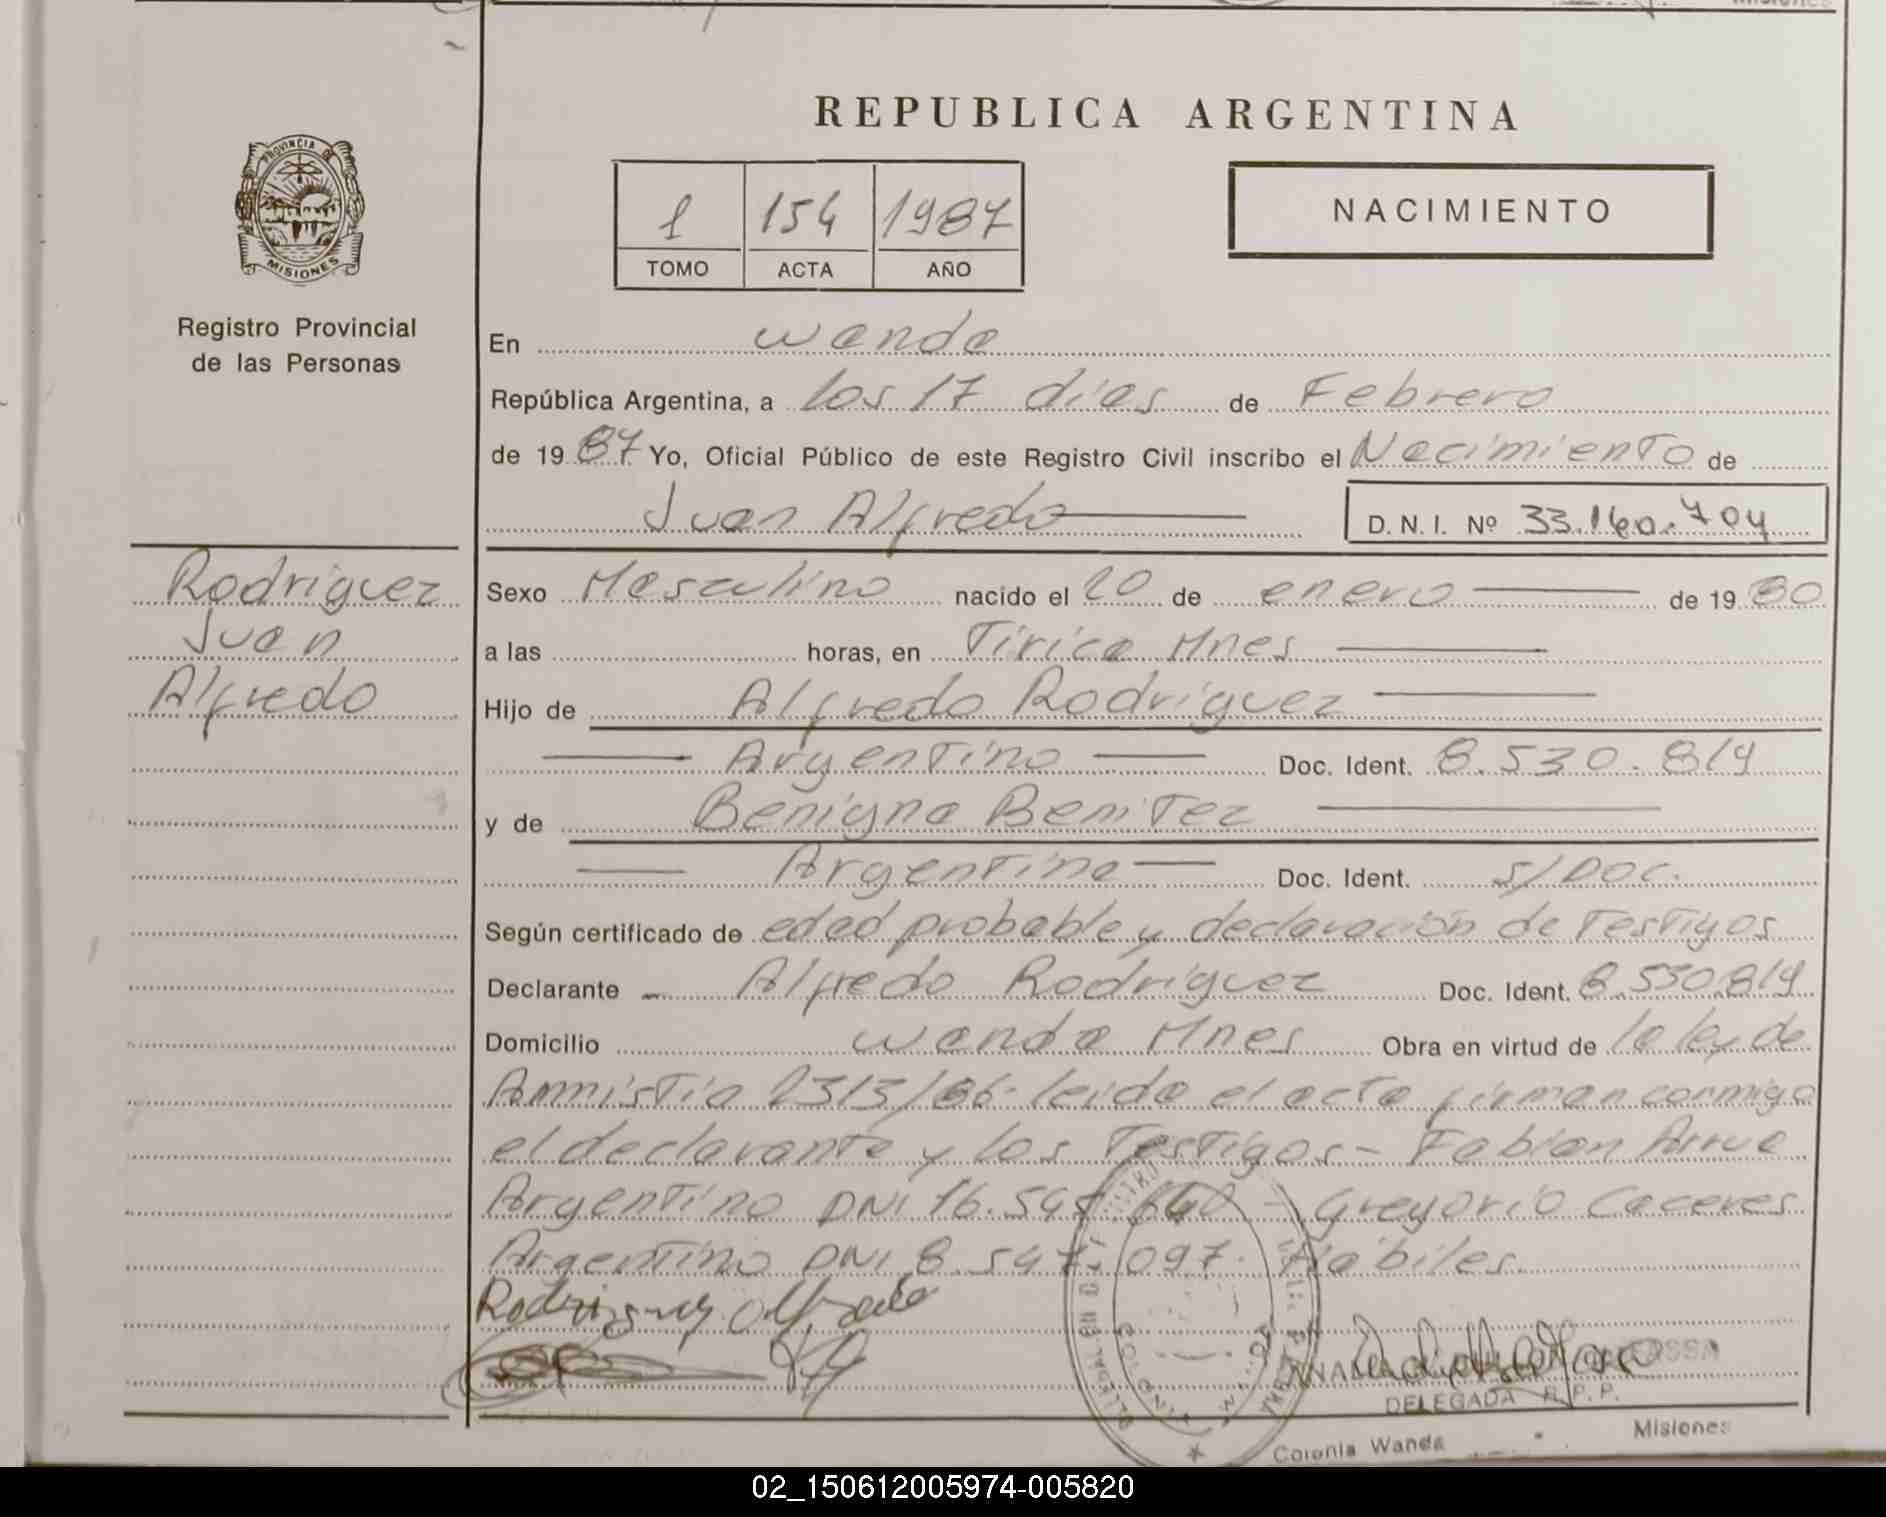 REPUBLICA ARGENTINA
PROVINCIA DE
MISIONES
1 154 1987
TOMO ACTA AÑO
NACIMIENTO
Registro Provincial
de las Personas
En Wanda
República Argentina, a los 17 días de Febrero
de 1987 Yo, Oficial Público de este Registro Civil inscribo el Nacimiento de
Juan Alfredo D.N.I. Nº 33.160.704
Rodriguez
Juan
Alfredo
Sexo Masculino nacido el 20 de enero de 1980
a las horas, en Tirica Mnes
Hijo de Alfredo Rodríguez
Argentino Doc. Ident. 8.530.819
y de Benigna Benitez
Argentina Doc. Ident. s/Doc.
Según certificado de edad probable y declaración de Testigos
Declarante Alfredo Rodríguez Doc. Ident. 8.530.819
Domicilio Wanda Mnes Obra en virtud de la ley de
Amnistía 2313/86- leída el acta firman conmigo
el declarante y los Testigos- Fabian
Argentino DNI 16.545.640 - Gregorio Caceres
Argentino DNI 8.547.097. Hábiles.
Rodriguez Alfredo
DELEGADA R. P. P.
Colonia Wanda Misiones
02_150612005974-005820